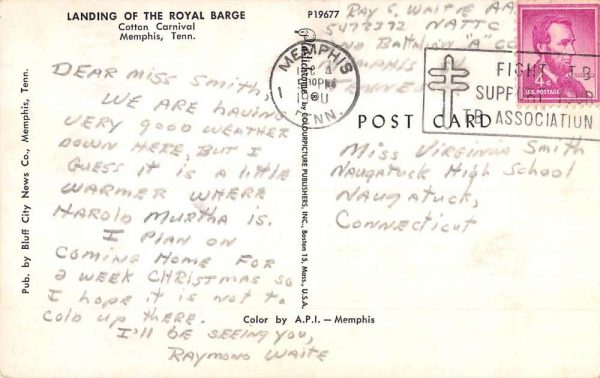 LANDING OF THE ROYAL BARGE
Cotton Carnival
Memphis, Tenn.
DEAR MISS SMITH,
WE ARE HAVING
VERY GOOD WEATHER
DOWN HERE, BUT I
GUESS IT IS A LITTLE
WARMER WHERE
HAROLD MURTHA IS.
I PLAN ON
COMING HOME FOR
2 WEEK CHRISTMAS SO
I HOPE IT IS NOT TO
COLD UP THERE.
I'LL BE SEEING YOU,
RAYMOND WAITE
Pub. by Bluff City News Co., Memphis, Tenn.
P19677
Plastichrome ® by COLOURPICTURE PUBLISHERS, INC., Boston 15, Mass., U.S.A.
Color by A.P.I. — Memphis
RAY S. WAITE AA
5473792 NATTC
BATTALION "A" CO
MEMPHIS
DEC 4
PM
1
TENN.
FIGHT TB
SUPPORT
TB ASSOCIATION
4¢
U.S. POSTAGE
POST CARD
Miss Virginia Smith
Naugatuck High School
Naugatuck,
Connecticut